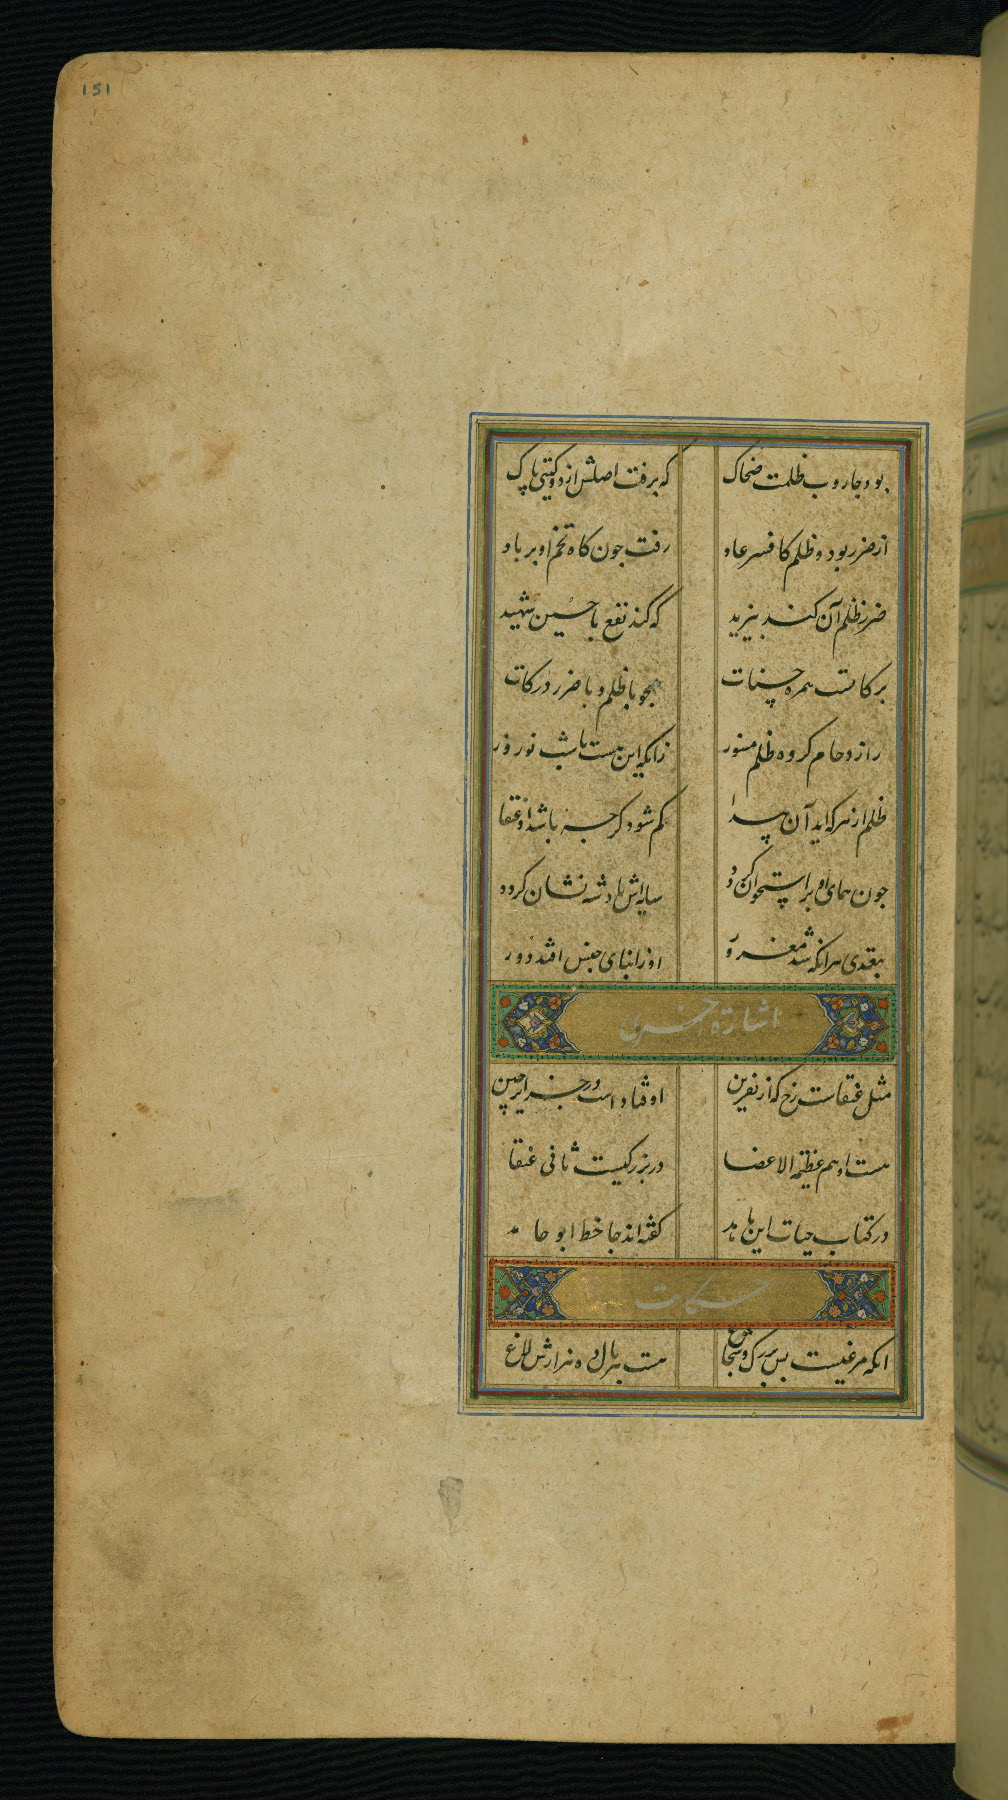 151
بود جاروب ظلمت ضحاک که برفت اصلش از دو گیتی پاک
از ضرر بود و ظلم کافر عاد رفت جون کاه تخم او بر باد
ضرر ظلم آن کند بیزید که کند نفع با حسین شهید
برکاتست همره حسنات همجو با ظلم و با ضرر درکات
راز دحام کروه ظلم منور زانکه این هست باشب نوروز
ظلم از هر که اید آن پیدا کم شود کرجه باشد او عنقا
جون همای او بر استخوان کردد سایه اش پادشه نشان کردد
بتعدی هر انکه شد مغرور او ز ابنای جنس افتد دور
اشارة اخری
مثل عنقاست رخ که از نفرین اوفتاد است در جزایر چین
هست او هم عظیم الاعضا در بزرکیست ثانی عنقا
در کتاب حیات این باهد کفته اند جا خط ابو حامد
حکایت
انکه مرغیست بس بزرک و شجاع هست بر بال ده هزارش باع